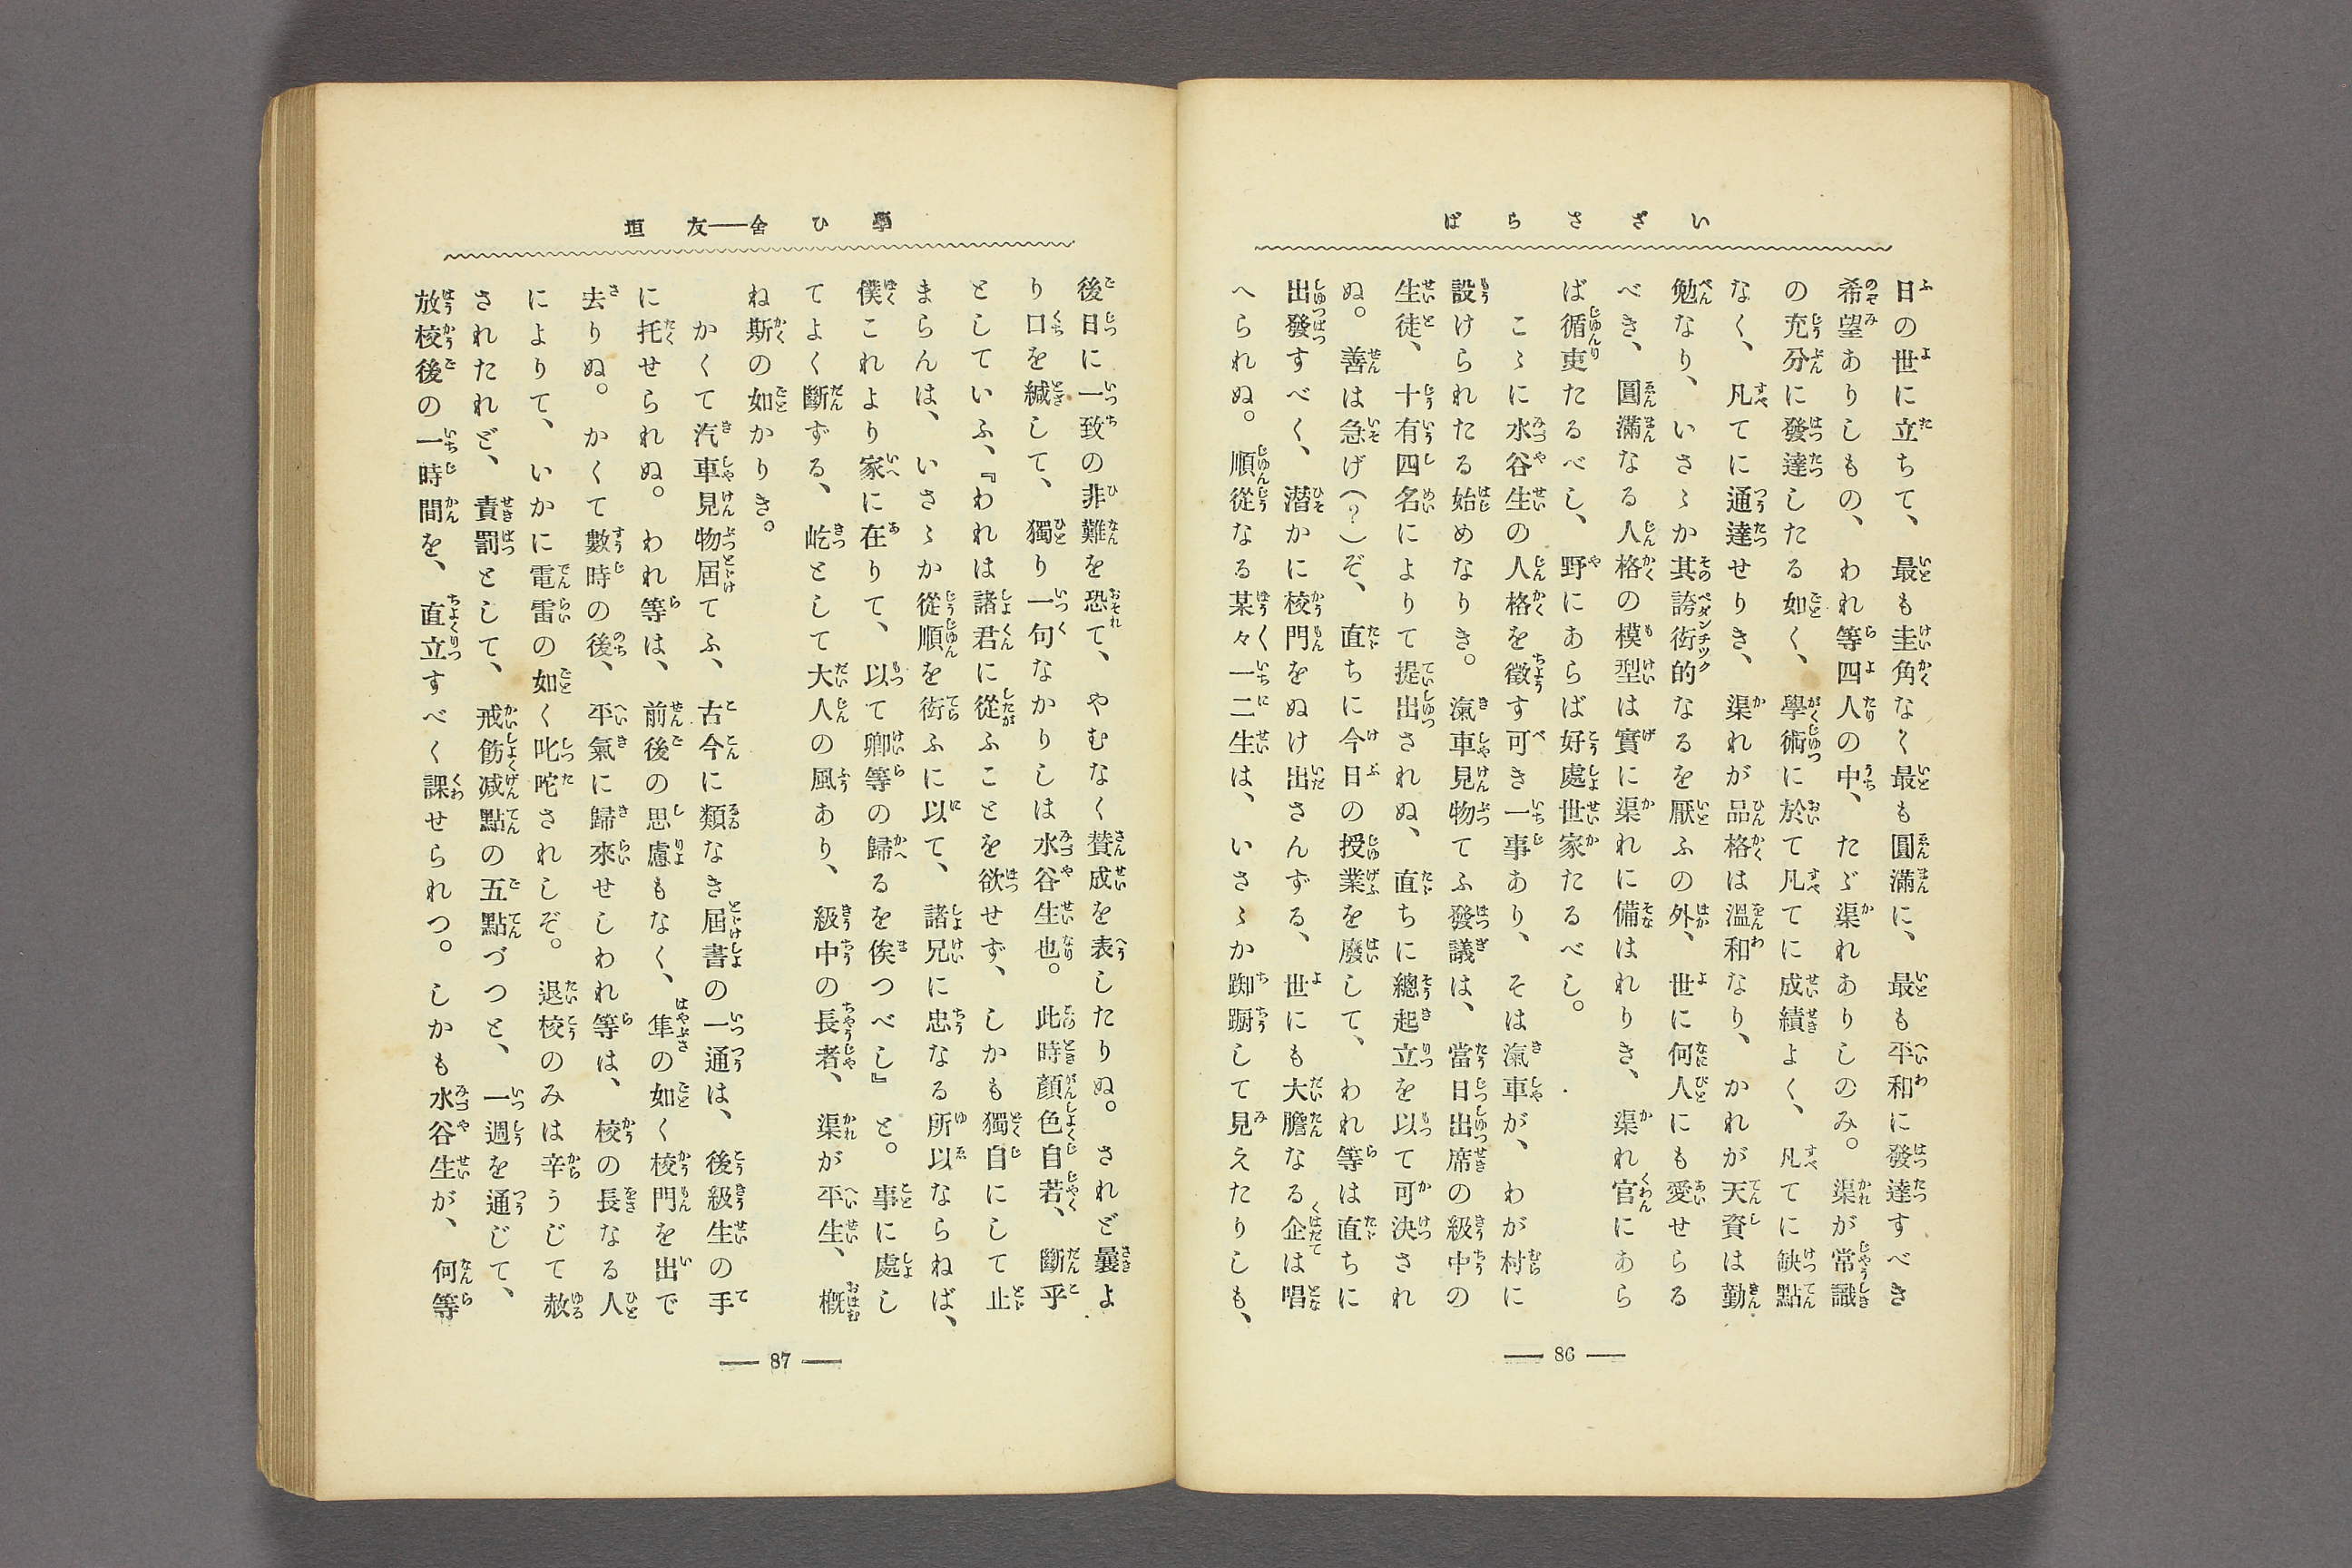 いささらば
日の世に立ちて、最も圭角なく最も圓滿に、最も平和に發達すべき
希望ありしもの、われ等四人の中、たゞ渠れありしのみ。渠が常識
の充分に發達したる如く、學術に於て凡てに成績よく、凡てに缺點
なく、凡てに通達せりき、渠れが品格は溫和なり、かれが天資は勤
勉なり、いさゝか其誇衒的なるを厭ふの外、世に何人にも愛せらる
べき、圓滿なる人格の模型は實に渠れに備はれりき、渠れ官にあら
ば循吏たるべし、野にあらば好處世家たるべし。
こゝに水谷生の人格を徴す可き一事あり、そは滊車が、わが村に
設けられたる始めなりき。滊車見物てふ發議は、當日出席の級中の
生徒、十有四名によりて提出されぬ、直ちに總起立を以て可決され
ぬ。善は急げ(?)ぞ、直ちに今日の授業を廢して、われ等は直ちに
出發すべく、潜かに校門をぬけ出さんずる、世にも大膽なる企は唱
へられぬ。順從なる某々一二生は、いさゝか踟蹰して見えたりしも、
— 86 —
學ひ舍——友垣
後日に一致の非難を恐て、やむなく賛成を表したりぬ。されど曩よ
り口を緘して、獨り一句なかりしは水谷生也。此時顏色自若、斷乎
としていふ、『われは諸君に從ふことを欲せず、しかも獨自にして止
まらんは、いさゝか從順を衒ふに以て、諸兄に忠なる所以ならねば、
僕これより家に在りて、以て卿等の歸るを俟つべし』と。事に處し
てよく斷ずる、屹として大人の風あり、級中の長者、渠が平生、概
ね斯の如かりき。
かくて汽車見物屆てふ、古今に類なき屆書の一通は、後級生の手
に托せられぬ。われ等は、前後の思慮もなく、隼の如く校門を出で
去りぬ。かくて數時の後、平氣に歸來せしわれ等は、校の長なる人
によりて、いかに電雷の如く叱咤されしぞ。退校のみは辛うじて赦
されたれど、責罰として、戒飭减點の五點づつと、一週を通じて、
放校後の一時間を、直立すべく課せられつ。しかも水谷生が、何等
— 87 —